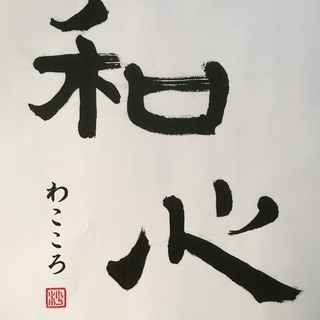 和心
わこころ